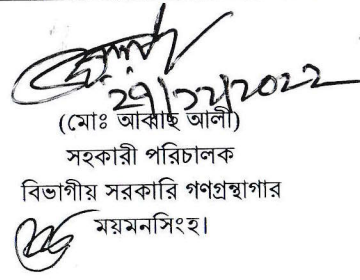 ২৭/১২/২০২২
(মোঃ আব্বাছ আলী)
সহকারী পরিচালক
বিভাগীয় সরকারি গণগ্রন্থাগার
ময়মনসিংহ।